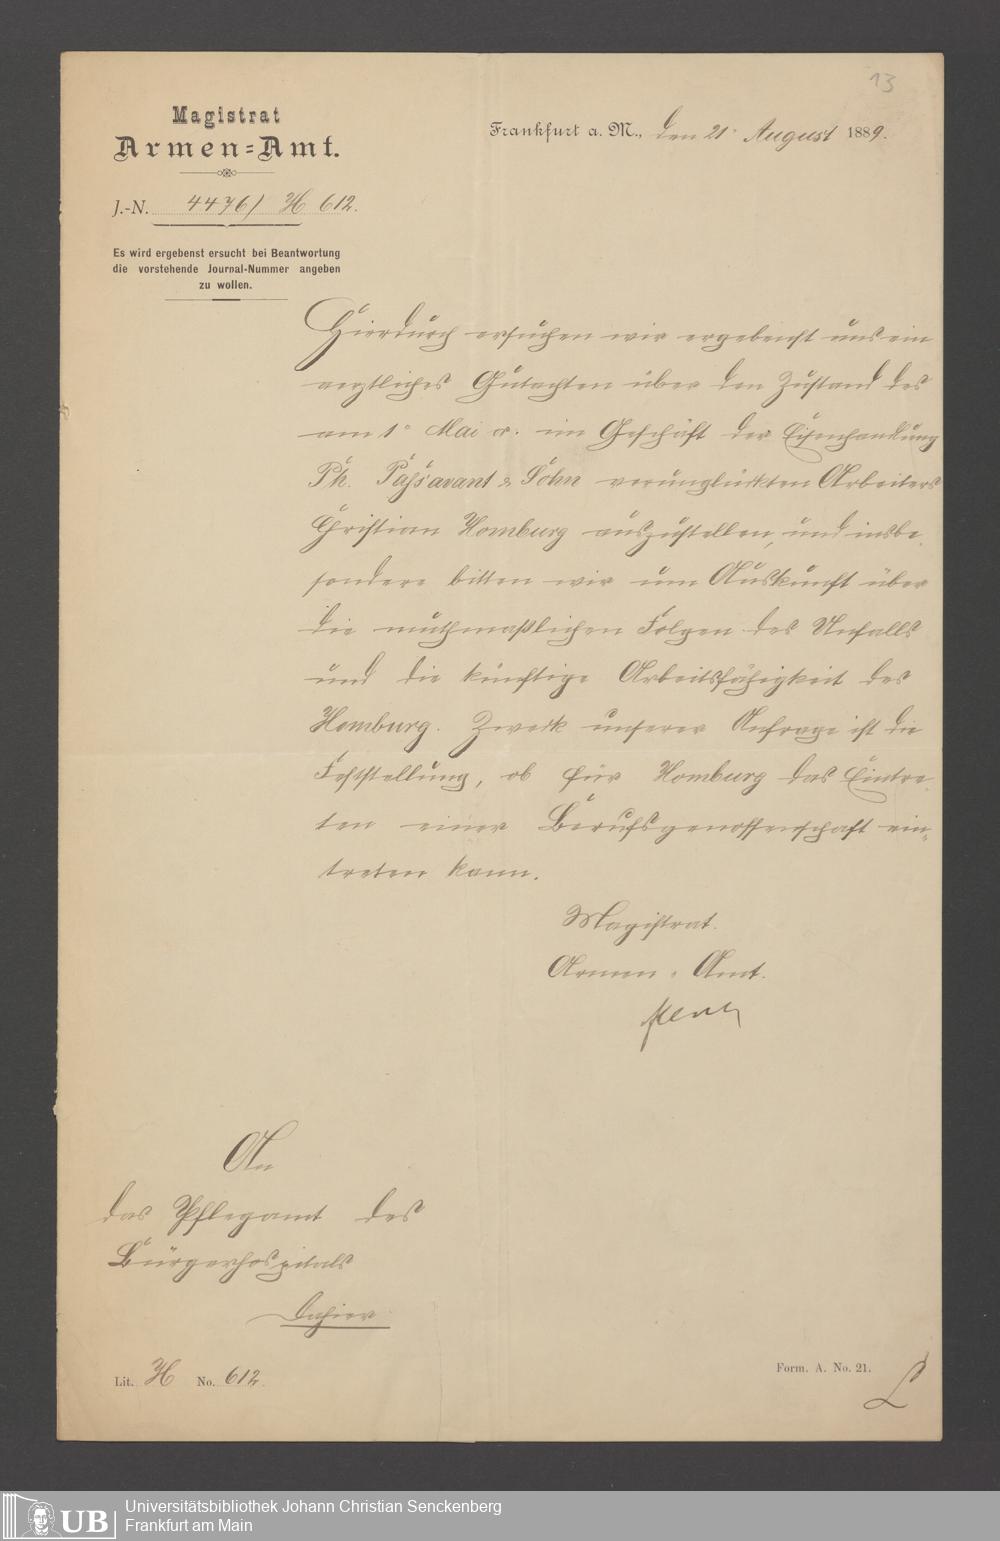 13
Magistrat
Armen=Amt.
Frankfurt a. M., den 21. August 1889.
J.-N. 4476/ H 612.
Es wird ergebenst ersucht bei Beantwortung
die vorstehende Journal-Nummer angeben
zu wollen.
Hierdurch ersuchen wir ergebenst uns ein
aerztliches Gutachten über den Zustand des
am 1. Mai cr. im Geschäft der Eisenhandlung
Ph. Passavant & Sohn verunglückten Arbeiters
Christian Homburg auszustellen, und insbe
sondere bitten wir um Auskunft über
die muthmaßlichen Folgen des Unfalls
und die künftige Arbeitsfähigkeit des
Homburg. Zweck unserer Anfrage ist die
Feststellung, ob für Homburg das Eintre
ten einer Berufsgenossenschaft ein-
treten kann.
Magistrat.
Armen-Amt.
An
das Pflegamt des
Bürgerhospitals
Dahier
Lit. H No. 612.
Form. A. No. 21.
UB
Universitätsbibliothek Johann Christian Senckenberg
Frankfurt am Main